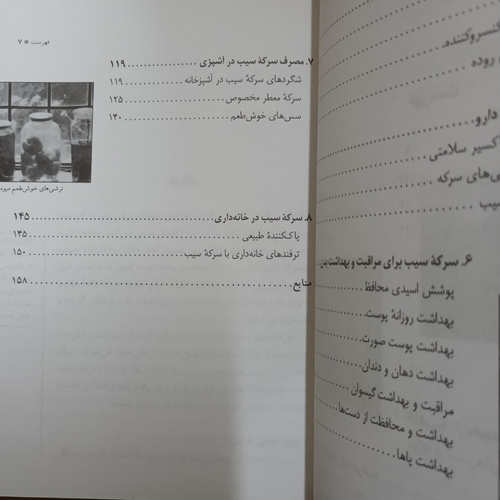 کنسروکننده
روده
دارو
کسیر سلامتی
ی‌های سرکه
سیب
۶. سرکهٔ سیب برای مراقبت و بهداشت
پوشش اسیدی محافظ
بهداشت روزانهٔ پوست
بهداشت پوست صورت
بهداشت دهان و دندان
مراقبت و بهداشت گیسوان
بهداشت و محافظت از دست‌ها
بهداشت پاها
فهرست ● ۷
۷. مصرف سرکهٔ سیب در آشپزی ۱۱۹
شگردهای سرکهٔ سیب در آشپزخانه ۱۱۹
سرکهٔ معطر مخصوص ۱۲۵
سس‌های خوش‌طعم ۱۴۰
ترشی‌های خوش‌طعم میوه
۸. سرکهٔ سیب در خانه‌داری ۱۴۵
پاک‌کنندهٔ طبیعی ۱۴۵
ترفندهای خانه‌داری با سرکهٔ سیب ۱۵۰
منابع ۱۵۸